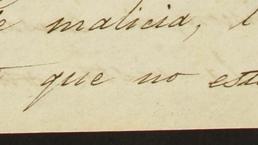 e malicia, l
que no est